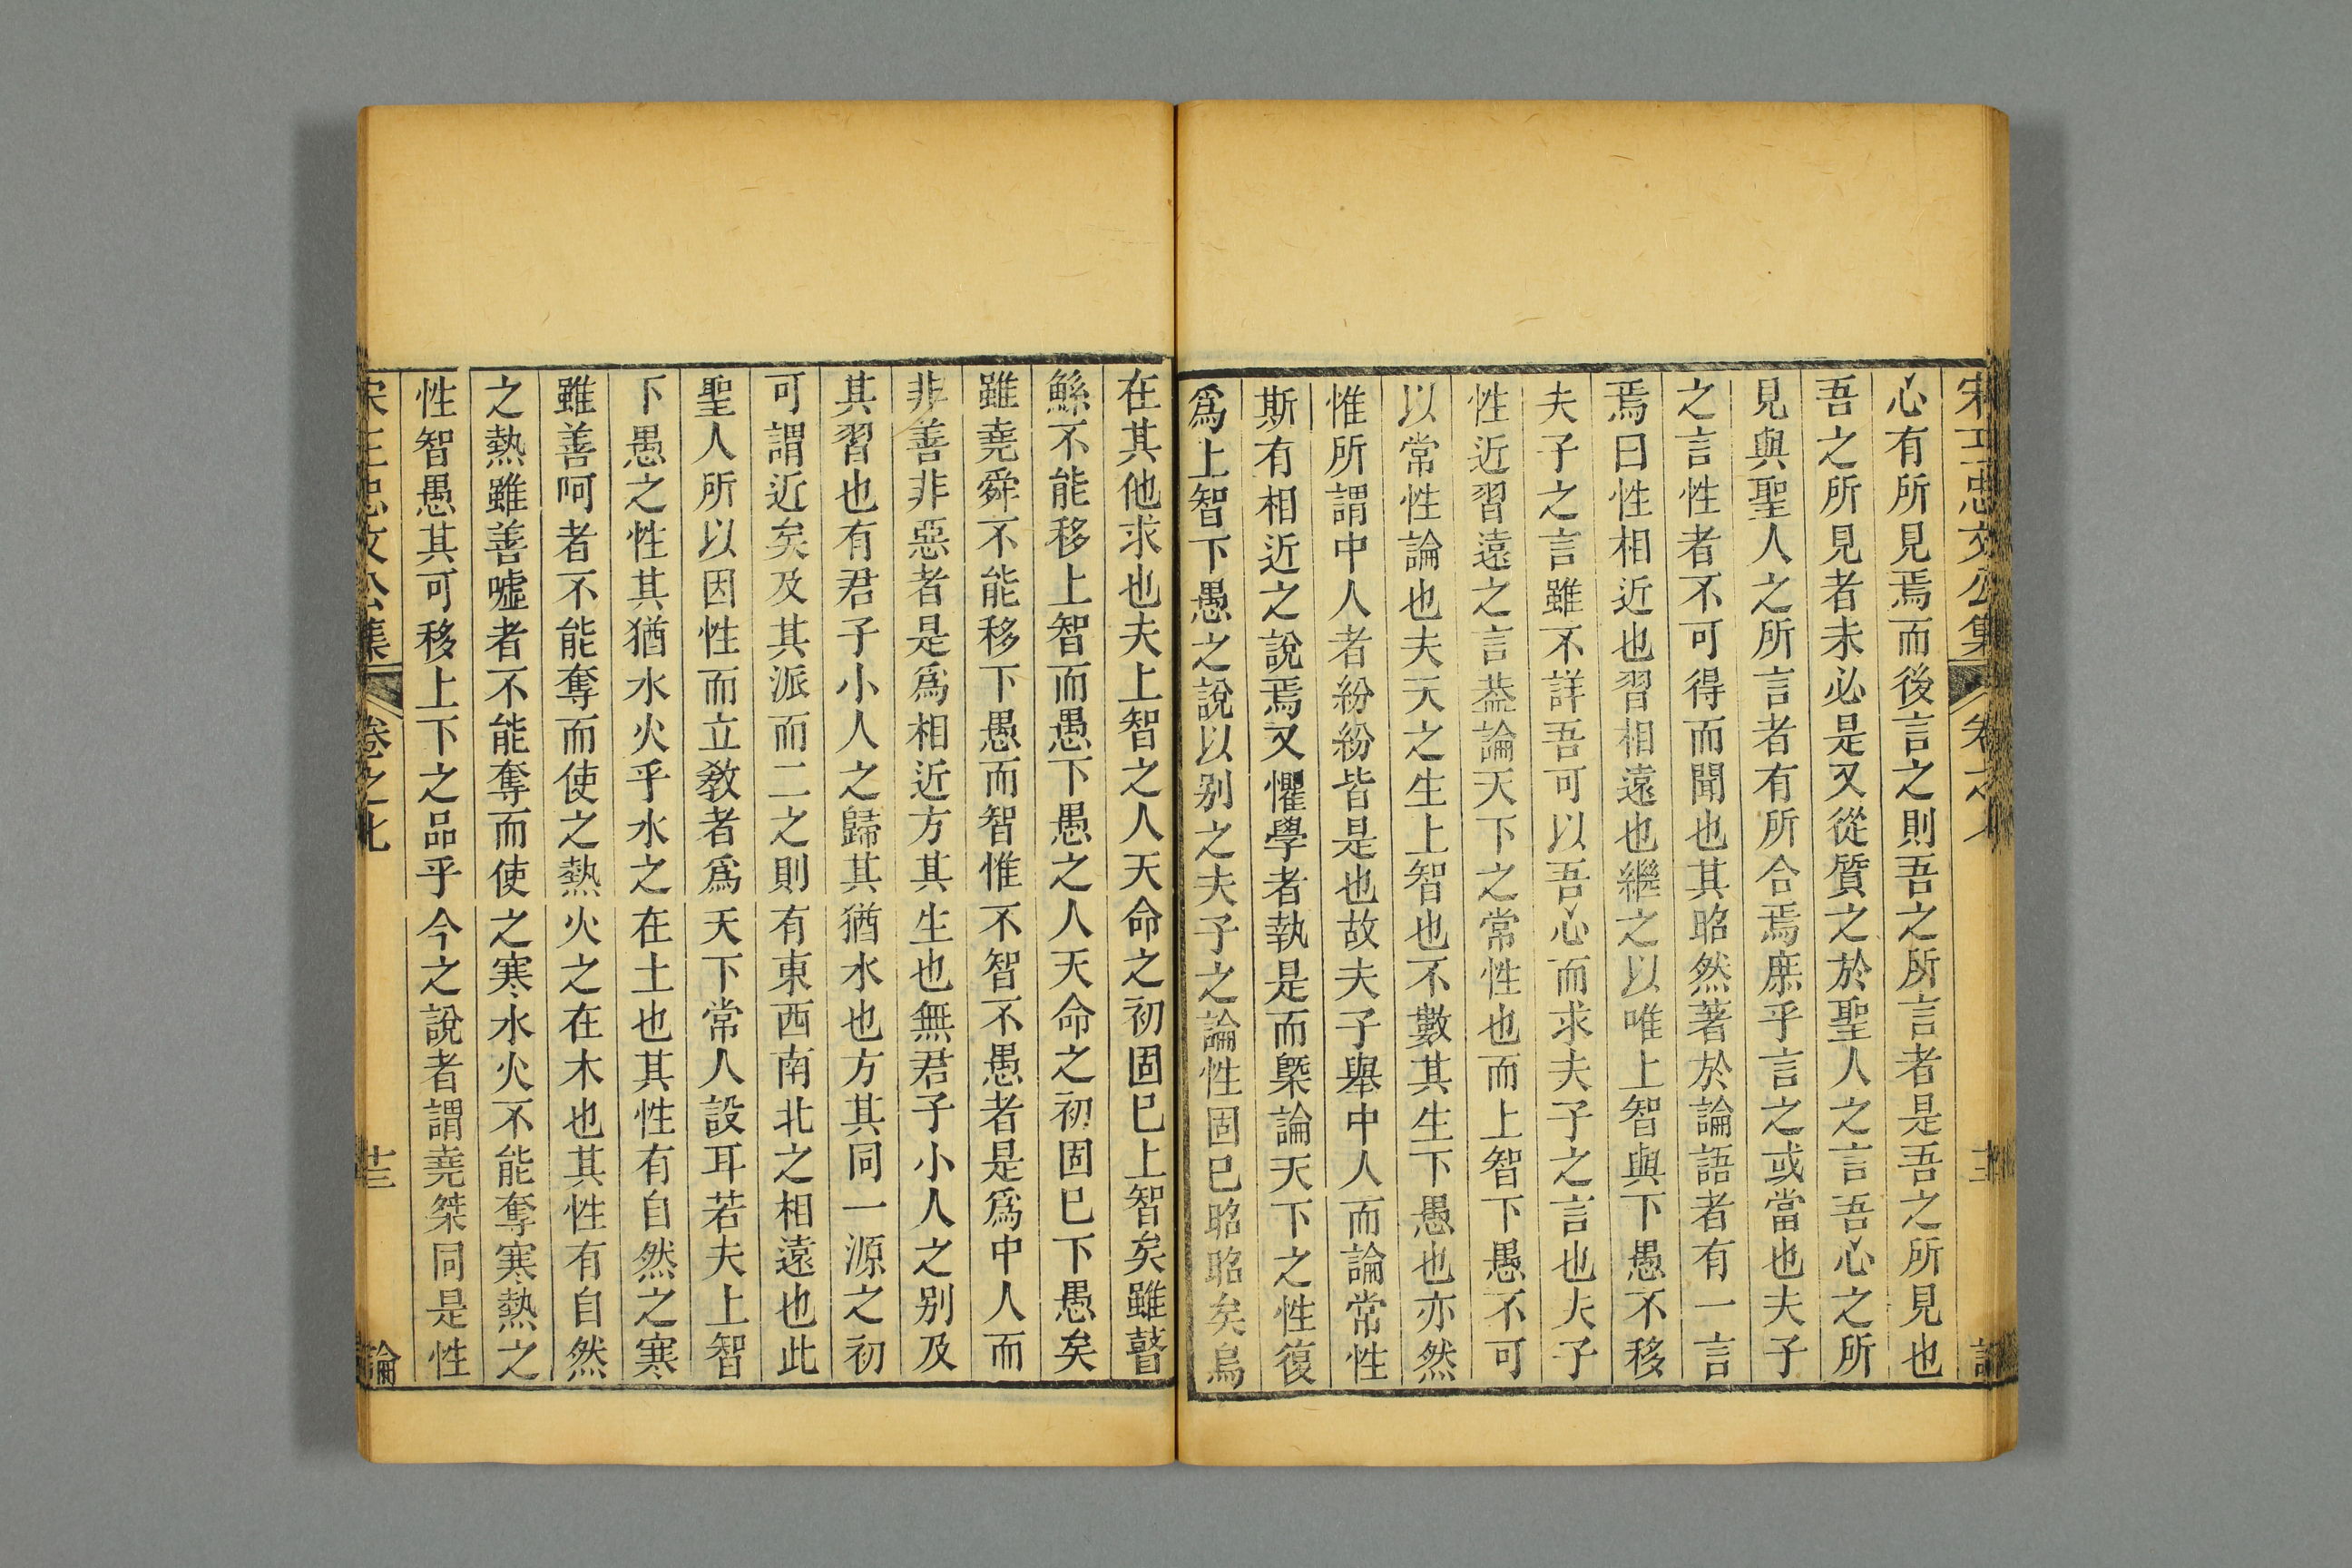 宋王忠文公集 卷之七 論
心有所見焉而後言之則吾之所言者是吾之所見也
吾之所見者未必是又從質之於聖人之言吾心之所
見與聖人之所言者有所合焉庶乎言之或當也夫子
之言性者不可得而聞也其昭然著於論語者有一言
焉曰性相近也習相遠也繼之以唯上智與下愚不移
夫子之言雖不詳吾可以吾心而求夫子之言也夫子
性近習遠之言葢論天下之常性也而上智下愚不可
以常性論也夫天之生上智也不數其生下愚也亦然
惟所謂中人者紛紛皆是也故夫子舉中人而論常性
斯有相近之說焉又懼學者執是而槩論天下之性復
爲上智下愚之說以别之夫子之論性固已昭昭矣烏
在其他求也夫上智之人天命之初固巳上智矣雖瞽
鯀不能移上智而愚下愚之人天命之初固巳下愚矣
雖堯舜不能移下愚而智惟不智不愚者是爲中人而
非善非惡者是爲相近方其生也無君子小人之别及
其習也有君子小人之歸其猶水也方其同一源之初
可謂近矣及其派而二之則有東西南北之相遠也此
聖人所以因性而立敎者爲天下常人設耳若夫上智
下愚之性其猶水火乎水之在土也其性有自然之寒
雖善呵者不能奪而使之熱火之在木也其性有自然
之熱雖善噓者不能奪而使之寒水火不能奪寒熱之
性智愚其可移上下之品乎今之說者謂堯桀同是性
宋王忠文公集 卷之七 廿三 論